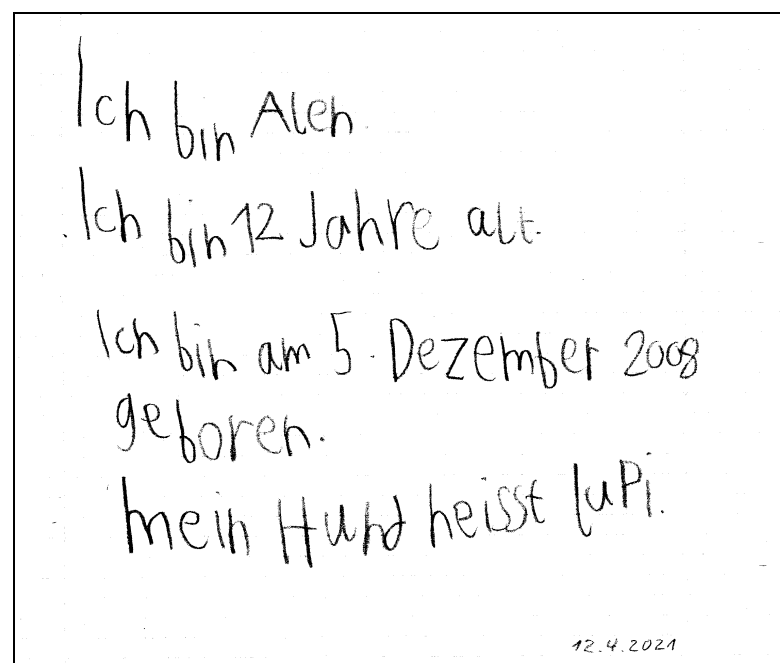 Ich bin Alen.
Ich bin 12 Jahre alt.
Ich bin am 5. Dezember 2008
geboren.
mein Hund heisst luPi.
12.4.2021